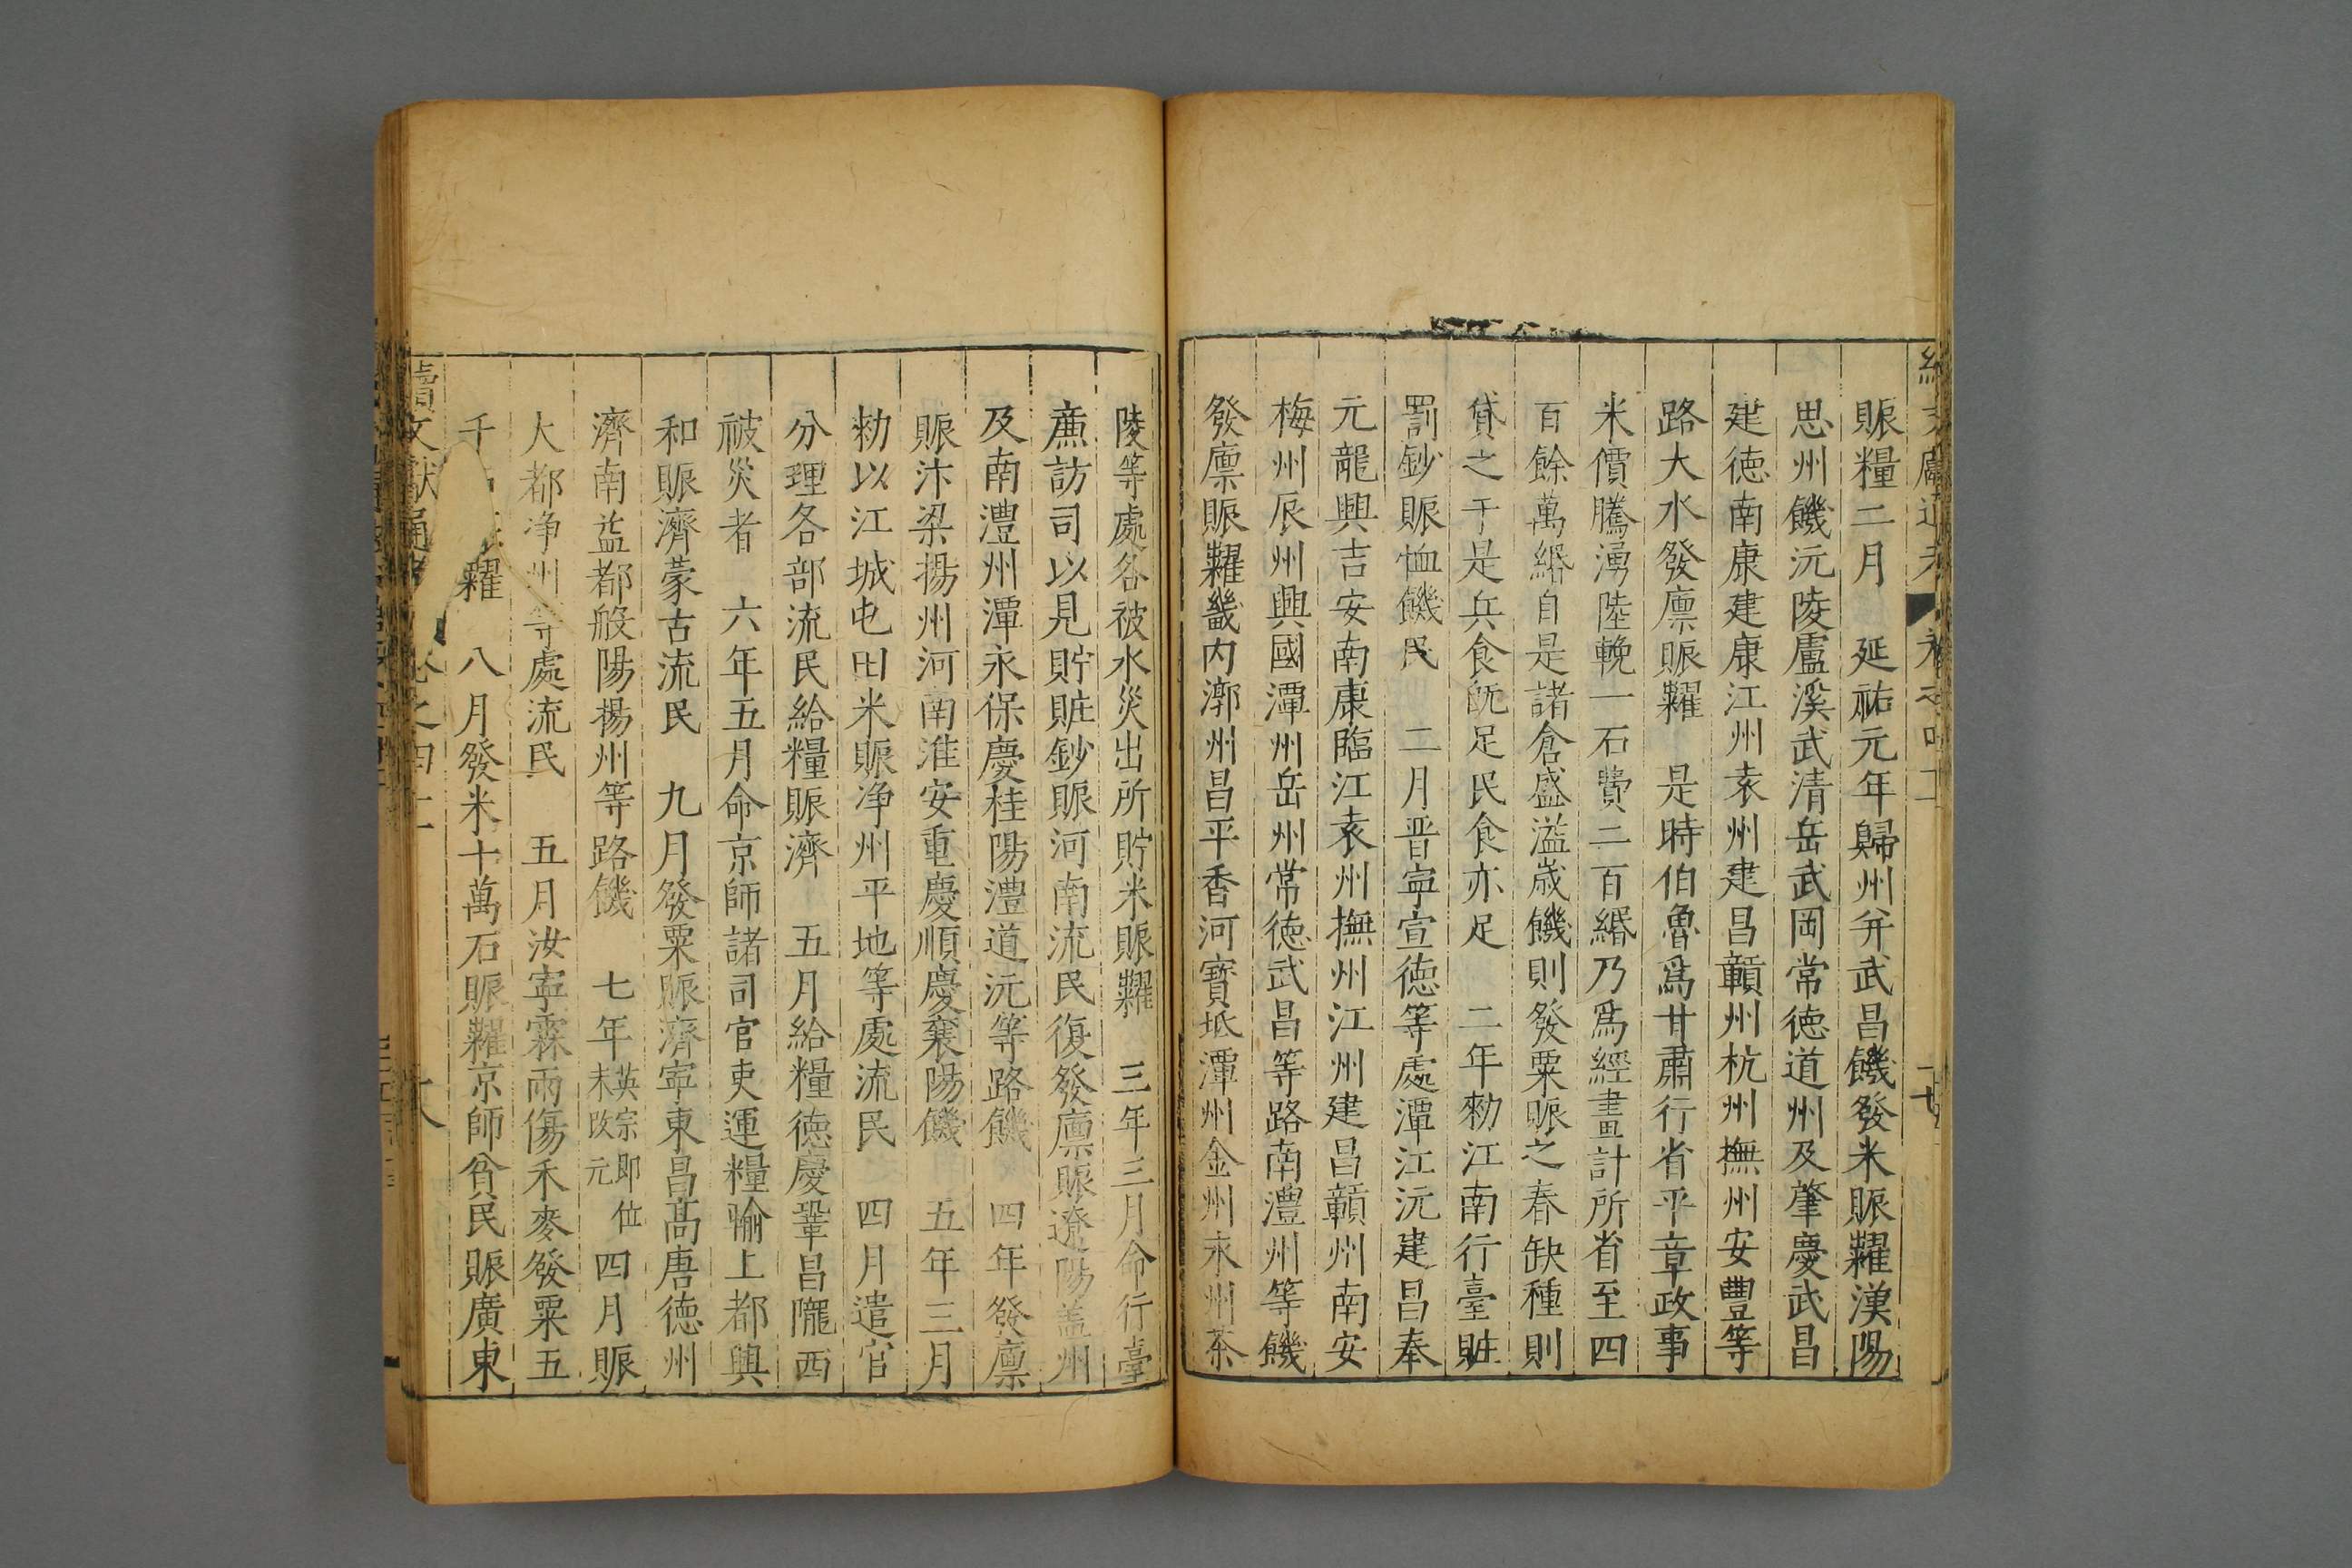 賑糧二月　延祐元年歸州并武昌饑發米賑糶漢陽
思州饑沅陵盧溪武清岳武岡常德道州及肇慶武昌
建德南康建康江州袁州建昌贑州杭州撫州安豐等
路大水發廪賑糶　是時伯魯爲甘肅行省平章政事
米價騰湧陸輓一石費二百緡乃爲經畫計所省至四
百餘萬緡自是諸倉盛溢歲饑則發粟賑之春缺種則
貸之于是兵食旣足民食亦足　二年勑江南行臺賍
罰鈔賑恤饑民　二月晋寜宣德等處潭江沅建昌奉
元龍興吉安南康臨江袁州撫州江州建昌贑州南安
梅州辰州興國潭州岳州常德武昌等路南澧州等饑
發廪賑糶畿内漷州昌平香河寳坻潭州金州永州茶
陵等處各被水災出所貯米賑糶　三年三月命行臺
亷訪司以見貯賍鈔賑河南流民復發廪賑遼陽盖州
及南澧州潭永保慶桂陽澧道沅等路饑　四年發廪
賑汴梁揚州河南淮安重慶順慶襄陽饑　五年三月
勑以江城屯田米賑净州平地等處流民　四月遣官
分理各部流民給糧賑濟　五月給糧德慶鞏昌隴西
被災者　六年五月命京師諸司官吏運糧輸上都興
和賑濟蒙古流民　九月發粟賑濟寜東昌高唐德州
濟南益都般陽揚州等路饑　七年英宗即位未改元四月賑
大都净州等處流民　五月汝寜霖雨傷禾麥發粟五
千糶　八月發米十萬石賑糶京師貧民賑廣東
續文獻通　卷之四二